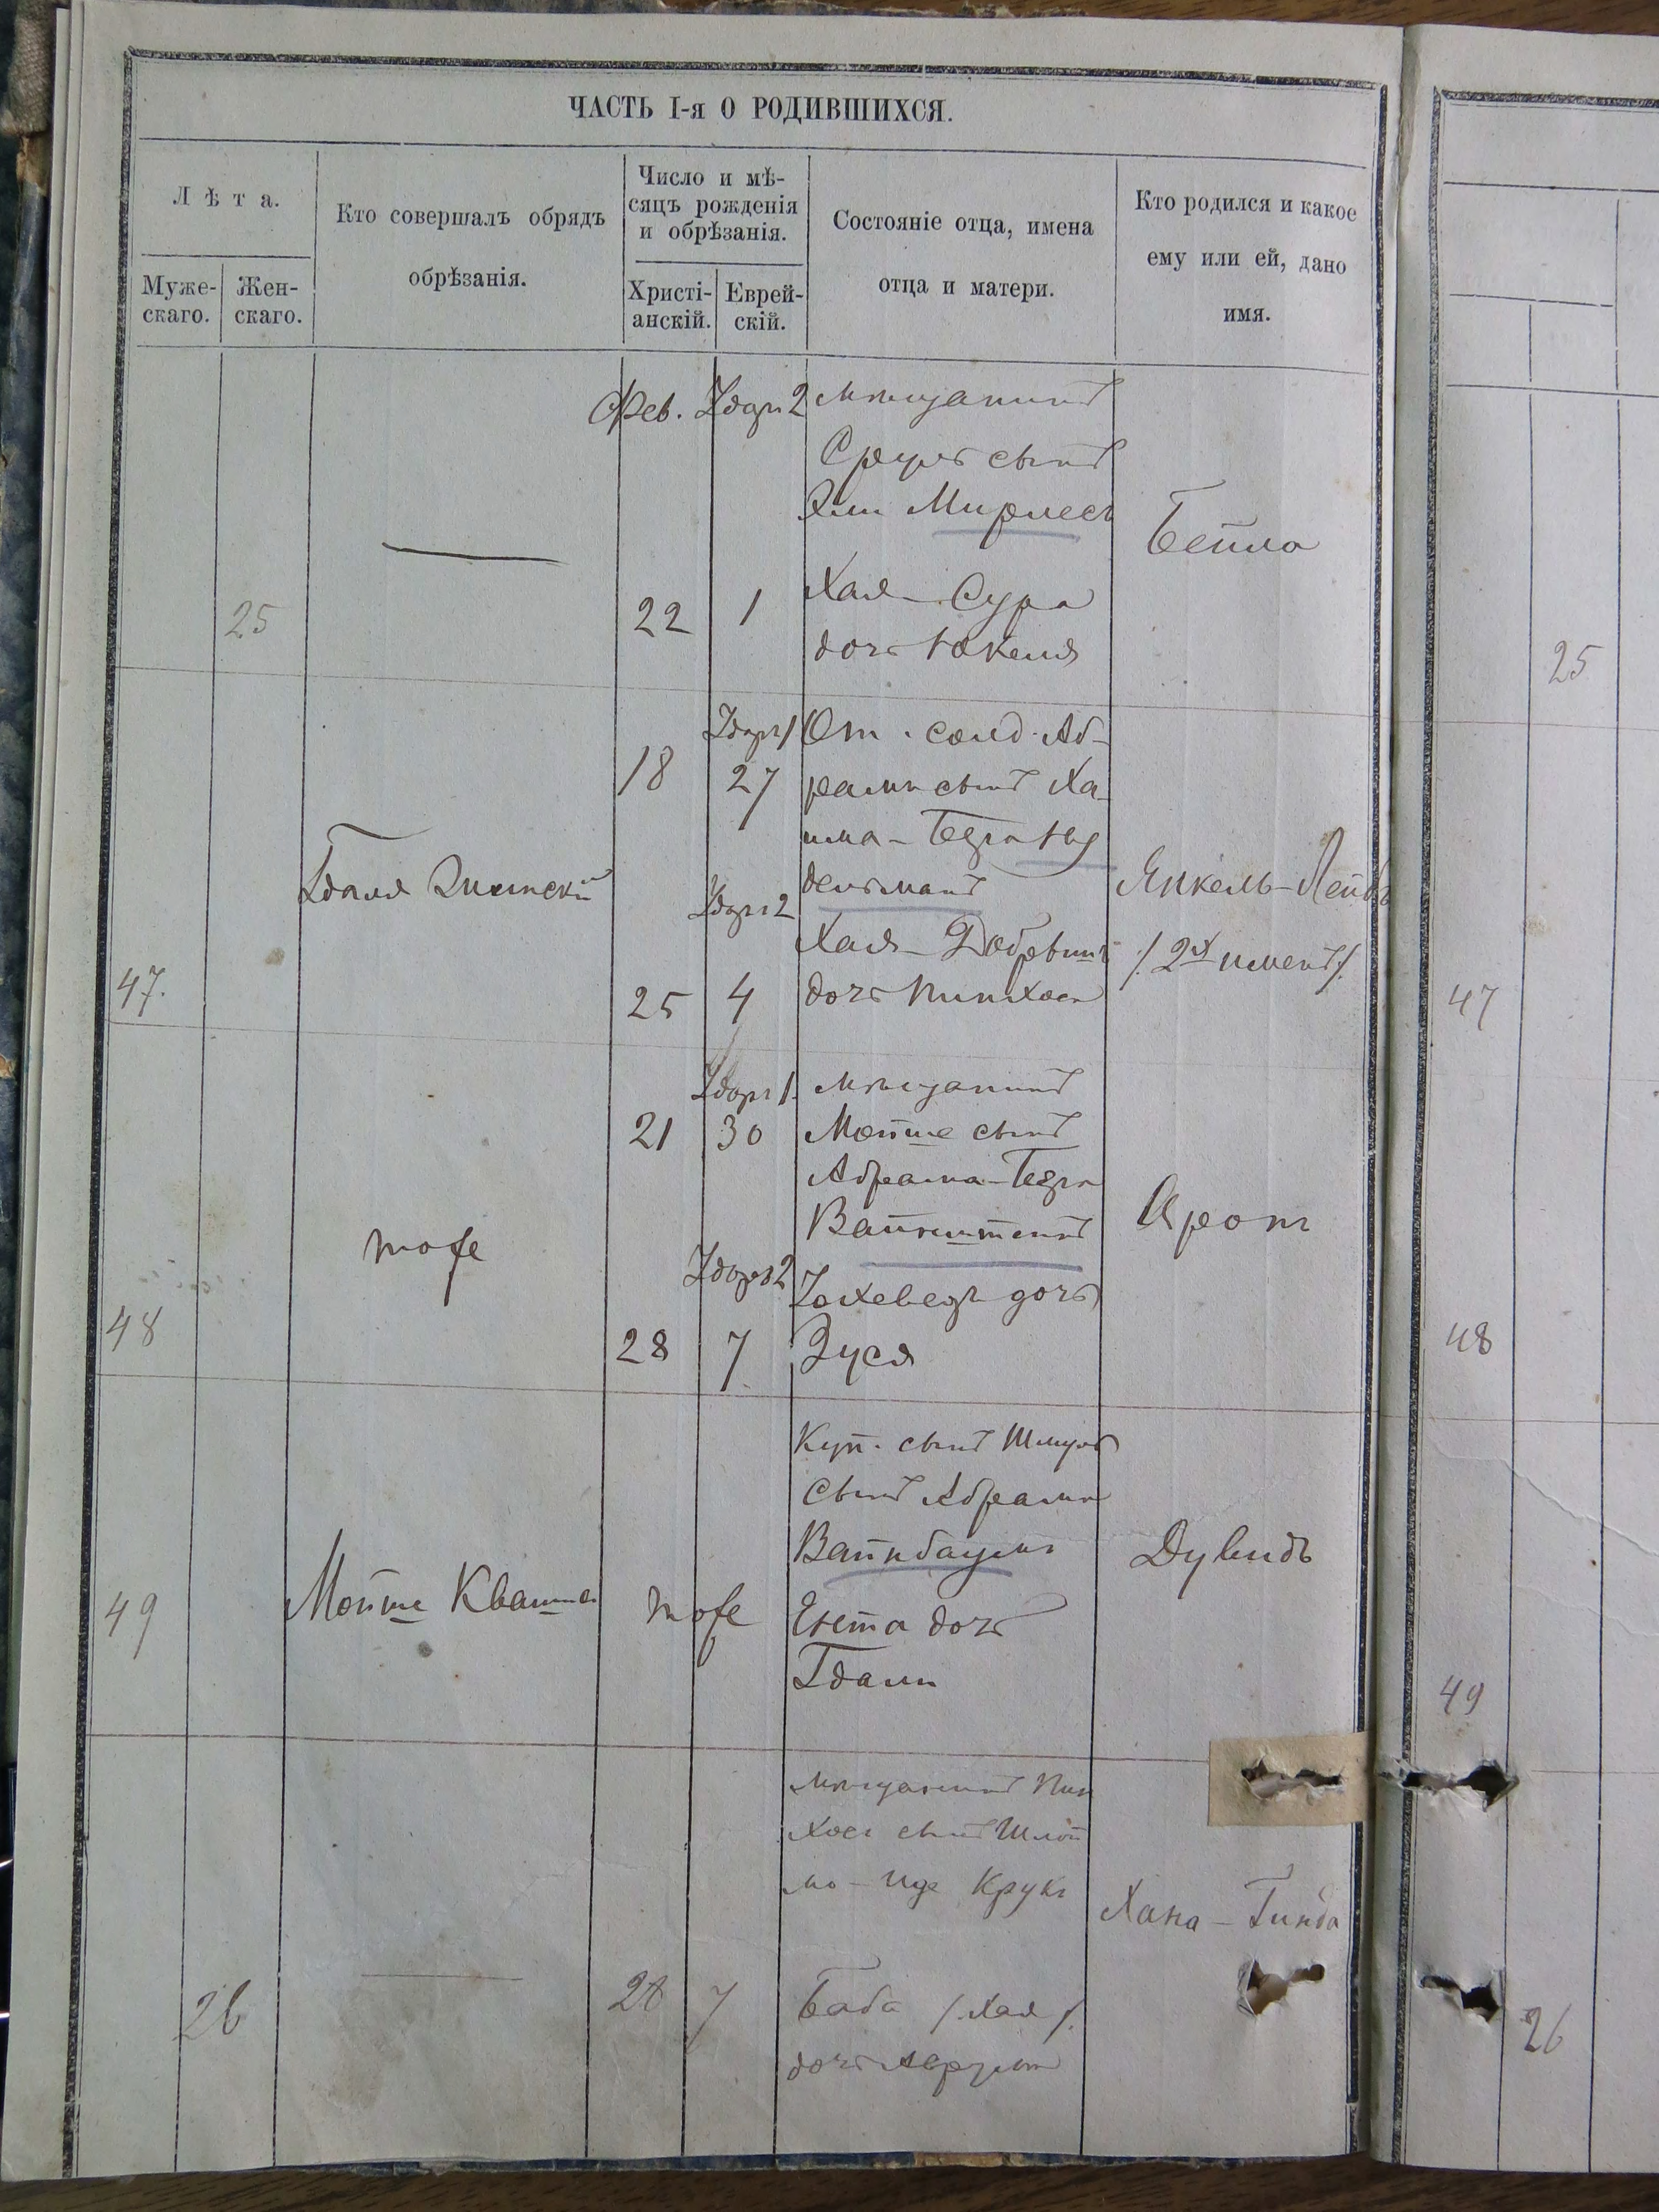 ЧАСТЬ I-я О РОДИВШИХСЯ.
Лѣта.
Муже-
скаго.
Жен-
скаго.
Кто совершалъ обрядъ
обрѣзанія.
Число и мѣ-
сяцъ рожденія
и обрѣзанія.
Христі-
анскій.
Еврей-
скій.
Состояніе отца, имена
отца и матери.
Кто родился и какое
ему или ей, дано
имя.
25
Фев.
22
Адаръ 2
1
мѣщанинъ
Сруль сынъ
Эли
Хая-Сура
дочь Юкеля
Бейла
25
47.
Гдаля
18
25
Адаръ 1
27
Адаръ 2
4
От. солд. Аб-
рамъ сынъ Ха-
има-Бера Ню
дельманъ
Хая-Добрышъ
дочь Пинхоса
Янкель-Лейба
/2хъ именъ/
47
48
тоже
21
28
Адаръ 1.
30
Адаръ 2
7
мѣщанинъ
Мойше сынъ
Абрама-Бера
Вайнштейнъ
Іохеведъ дочь
Зуся
Аронъ
48
49
Мойше Кваша
тоже
Куп. сынъ Шмуль
сынъ Абрама
Вайнбаумъ
Ента дочь
Гдали
Дувидъ
49
26
28
7
мѣщанинъ Пин
хосъ сынъ Шлой
мо- Крукъ
Баба /Хая/.
дочь Аврума
Хана-Гинда
26